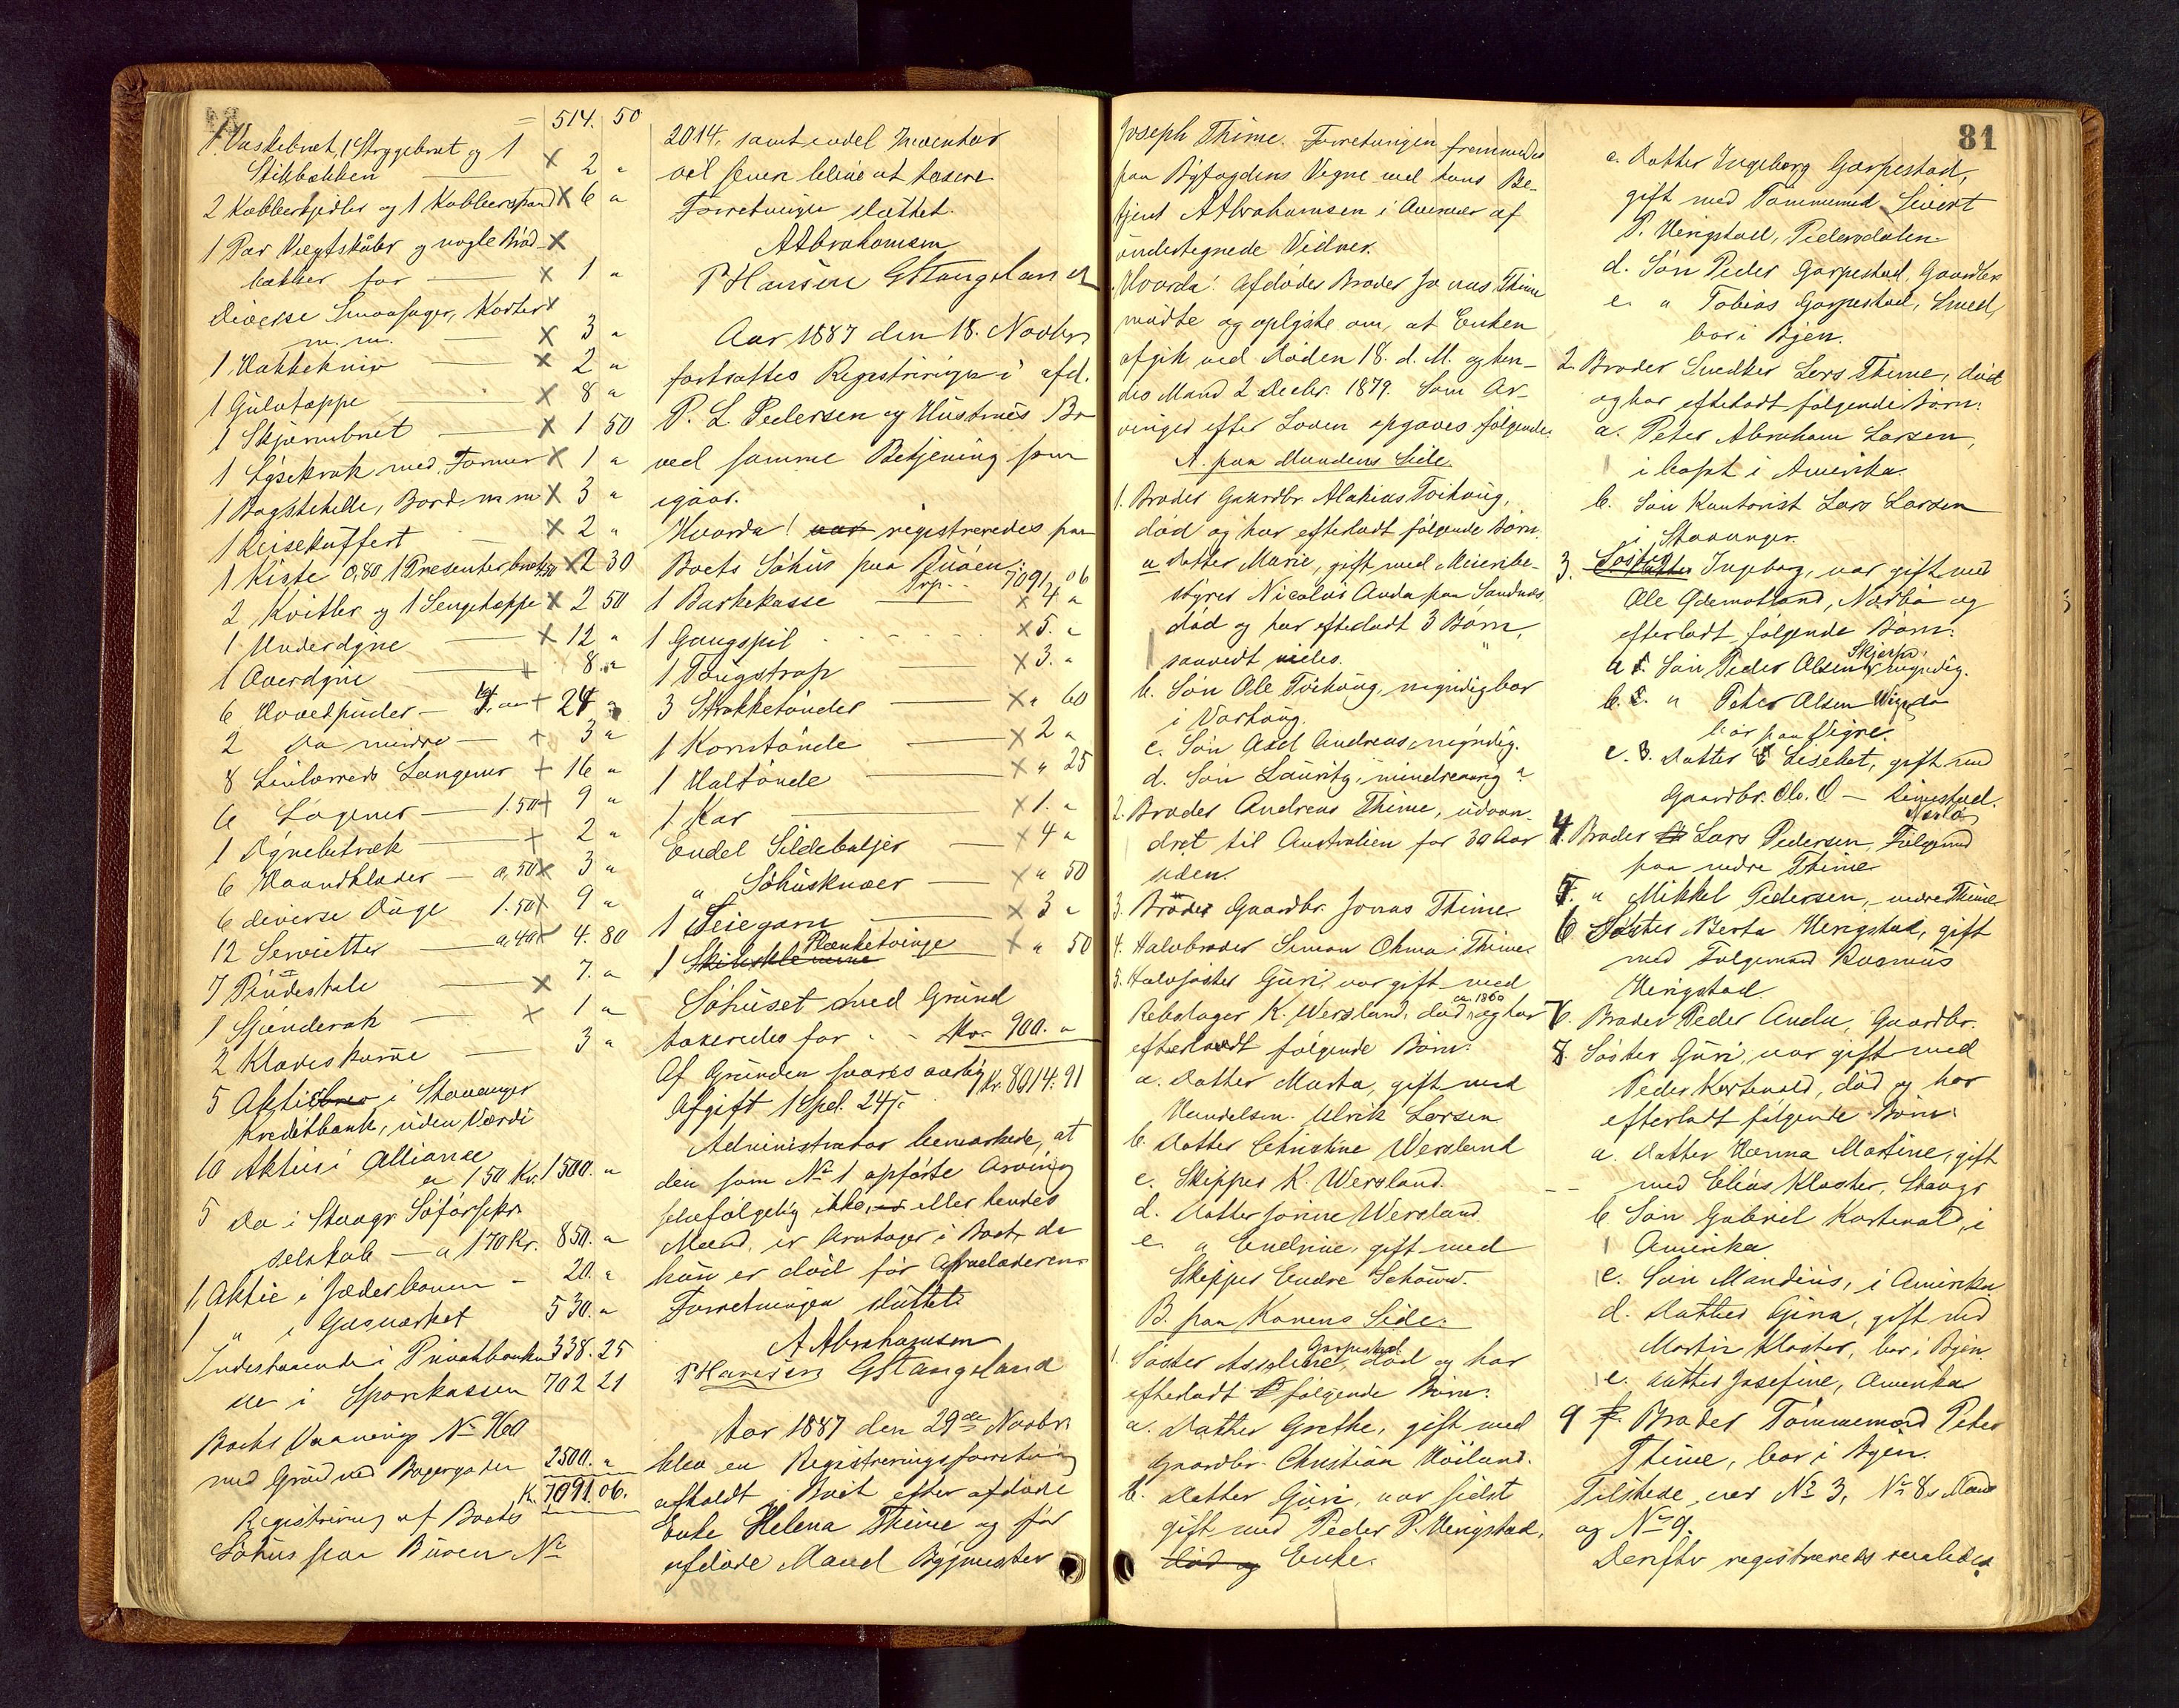 514. 50
1 Vaskebræt, 1 Strygebræt og 1
Stikbækken — x 2 "
2 Kobberkjedler og 1 Kobberspand x 6 "
1 Par Vægtskåler og nogle Bród x
bakker for — x 1 "
Diverse Smaasager, Kasler x
m. m. — x 3 "
1 Hakkekniv — x 2 "
1 Gulvtæppe — x 8 "
1 Skjærmbræt — x 1 50
1 Lysekrak med Former x 1 "
1 Bagstehelle, Bord m m x 3 "
1 Reisekuffert x 2 "
1 Kiste 0,80 1 Presenterbræt 1,50 x 2 30
2 Kvitler og 1 Sengetæppe x 2 50
1 Underdyne — x 12 "
1 Overdyne — + 8. "
6 Hovedpuder — 4, " + 24 "
2 do mindre — + 3 "
8 Linlærreds Lagener + 16 "
6 Lagener — 1.50 + 9 "
1 Dynebetræk — + 2 "
6 Haandklæder — a, 50 x 3 "
6 diverse Duge 1.50 x 9 "
12 Servietter — a, 40 x 4. 80
7 Pudestale — x 7. "
1 Gjenderak — x 1 "
2 Klædeskurve — 3 "
5 Aktiebrev i Stavanger
Kreditbank, uden Værdi
10 Aktier i Alliance
a 150 Kr. 1500. "
5 do i Stavgr Söforsikr
selskab — a 170 Kr. 850. "
1 Aktie i Jæderbanen — 20. "
1 " i Gasværket 530. "
Indestaaende i Privatbanken 338. 25
do i Sparekassen 702 21
Boets Vaaning No 960
med Grund ved Bagergaden 2500. "
Kr. 7091. 06.
Registrering af Boets
Söhus paa Buöen No
2014, samt endel Inventar
vil senere blive at taxere
Forretningen sluttet.
A Abrahamsen
P Hansen G Stangeland
Aar 1887 den 18. Novbr
fortsattes Registreringen i afd.
P. L. Pedersen og Hustrues Bo
ved samme Betjening som
igaar.
Hvorda! var registreredes paa
Boets Söhus paa Buöen:
Trp. 7091, 06
1 Barkekasse x 4 "
1 Gangspil x 5. "
1 Tougstrap — x 3. "
3 Strokketönder — x " 60
1 Korntönde — x 2 "
1 Haltönde — x " 25
1 Kar — x 1. "
Endel Sildebaljer — x 4 "
" Söhusknæer — x " 50
1 Seiegarn — x 3 "
Plænketvinge
1 Skibsklemme x " 50
Söhuset med Grund
taxeredes for Kr 900. "
Af Grunden svares aarlig Kr. 8014. 91
Afgift 1 Spd. 24 ß
Administrator bemærkede, at
den som No 1 opförte Arving
selvfölgelig ikke, eller hendes
Mand, er Arvtager i Boet, da
hun er död för Arveladeren
Forretningen sluttet
A Abrahamsen
P Hansen G Stangeland
Aar 1887 den 29de Novbr
blev en Registreringsforretning
afholdt i Boet efter afdöde
Enke Helena Thime og för
afdöde Mand Bygmester
81
Joseph Thime. Forretningen fremmedes
paa Byfogdens Vegne ved hans Be-
tjent A Abrahamsen i Overvær af
undertegnede Vidner.
Hvorda! Afdödes Broder Jonas Thime
mödte og oplyste om, at Enken
afgik ved Döden 18. d. M. og hen-
des Mand 2 Decbr. 1879. Som Ar-
vinger efter Loven opgaves fölgende:
A. paa Mandens Side.
1. Broder Gaardbr. Alakias Tvihaug,
död og har efterladt fölgende Börn:
a Datter Marie, gift med Meieribe-
styrer Nicolai Auda paa Sandnæs,
död og har efterladt 3 Börn,
saavidt vides.
b. Sön Ole Tvihaug, myndig bor
i Varhaug.
c. Sön Axel Andreas, myndig.
d. Sön Lauritz, mindreaarig?
2. Broder Andreas Thime, udvan-
dret til Australien for 30 Aar
siden.
3. Broder Gaardbr. Jonas Thime.
4. Halvbroder Simon Ohma i Thime.
5. Halvsöster Guri, var gift med
Rebslager K. Wersland, död ca. 1860 og har
efterladt fölgende Börn:
a. Datter Marta, gift med
Handelsm. Ulrik Larsen
b. Datter Christine Wersland
c. Skipper K. Wersland.
d. Datter Jonine Wersland
e. " Endrine, gift med
Skipper Endre Schouw.
B. paa Konens Side.
1. Söster Asseline Garpestad, död og har
efterladt fölgende Börn:
a. Datter Grethe, gift med
Gaardbr. Christian Höiland.
b. Datter Guri, var sidst
gift med Peder P. Heigstad,
död og Enke.
c. Datter Ingeborg Garpestad,
gift med Tömmermd Sivert
P. Heigstad, Pedersdalen
d. Sön Peder Garpestad, Gaardbr
e. " Tobias Garpestad, Smed,
bor i Byen.
2. Broder Snedker Lars Thime, död
og har efterladt fölgende Börn:
a. Peter Abraham Larsen,
i bosat i Amerika.
b. Sön Kontorist Lars Larsen
i Stavanger.
3. Söster Datter Ingeborg, var gift med
Ole Ødemotland, Nærbö og
efterladt fölgende Börn:
a 1. Sön Peder Olsen Skjerpe, myndig.
b. 2. " Peter Olsen Vigre do
bor paa Vigre.
c. 3. Datter Lisebet, gift med
Gaardbr. Ol. O — Rimestad.
Nærbö
4. Broder Lars Pedersen, Fölgemd
paa nedre Thime
5. " Mikkel Pedersen, nedre Thime
6 Söster Berta Herigstad, gift
med Folgemand Rasmus
Herigstad.
7. Broder Peder Anda, Gaardbr.
8 Söster Guri, var gift med
Peder Kartevold, död og har
efterladt fölgende Börn:
a. Datter Hanna Martine, gift
med Elias Kloster, Stavgr
b Sön Gabriel Kartevold, i
Amerika
c. Sön Mandius, i Amerika
d. Datter Gina, gift med
Martin Kloster, bor i Byen.
e. Datter Josefine, Amerika
9 Broder Tömmermand Peter
Thime, bor i Byen.
Tilstede var No 3, No 8s Mand
og No 9.
Derefter registreredes saaledes